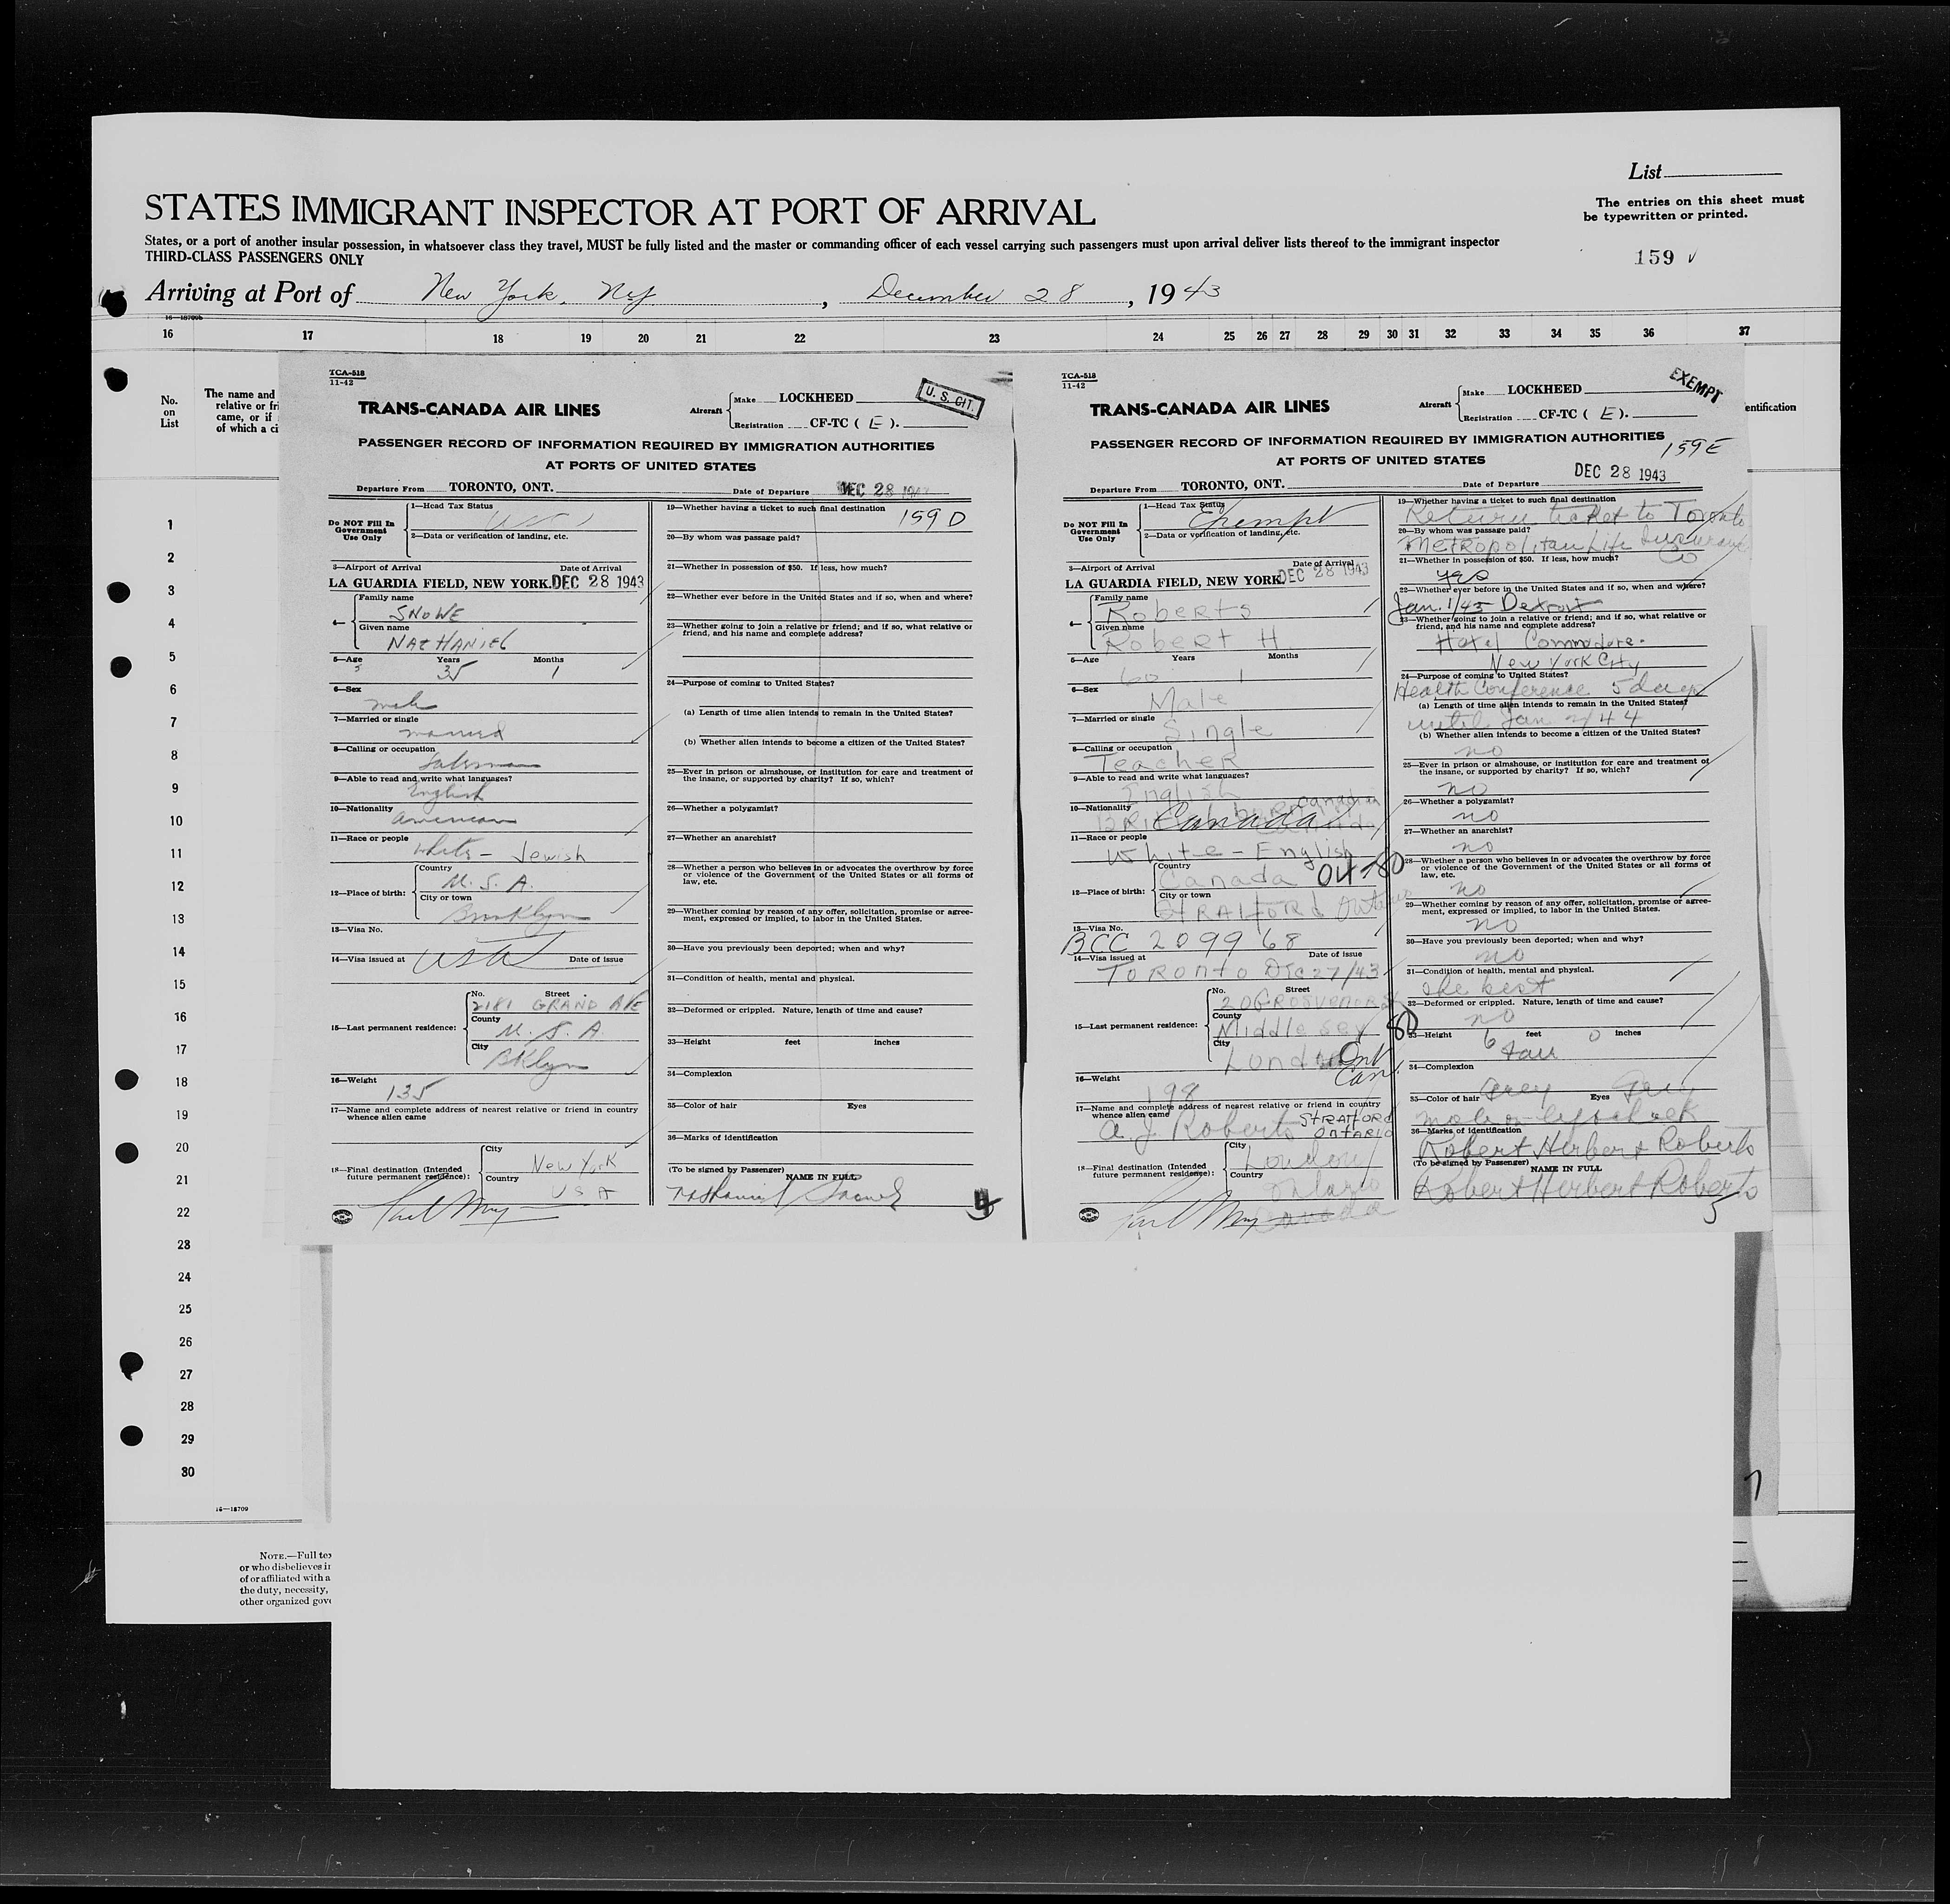 List
STATES IMMIGRANT INSPECTOR AT PORT OF ARRIVAL
The entries on this sheet must
be typewritten or printed.
States, or a port of another insular possession, in whatsoever class they travel, MUST be fully listed and the master or commanding officer of each vessel carrying such passengers must upon arrival deliver lists thereof to the immigrant inspector
THIRD-CLASS PASSENGERS ONLY
159
Arriving at Port of New York, Ny, December 28, 1943
16 17 18 19 20 21 22 23 24 25 26 27 28 29 30 31 32 33 34 35 36 37
No.
on
List
The name and
relative or fri
came, or if
of which a ci
entification
TCA-518
11-42
TRANS-CANADA AIR LINES
Aircraft
Make LOCKHEED
Registration CF-TC ( E ).
U. S. CIT.
PASSENGER RECORD OF INFORMATION REQUIRED BY IMMIGRATION AUTHORITIES
AT PORTS OF UNITED STATES
Departure From TORONTO, ONT. Date of Departure DEC 28 1943
Do NOT Fill In
Government
Use Only
1—Head Tax Status
2—Data or verification of landing, etc.
3—Airport of Arrival Date of Arrival
LA GUARDIA FIELD, NEW YORK. DEC 28 1943
4— Family name
SNOWE
Given name
NATHANIEL
5—Age Years Months
35 1
6—Sex
male
7—Married or single
married
8—Calling or occupation
Salesman
9—Able to read and write what languages?
English
10—Nationality
American
11—Race or people
White - Jewish
12—Place of birth:
Country
U. S. A.
City or town
Brooklyn
13—Visa No.
14—Visa issued at USA Date of issue
15—Last permanent residence:
No. Street
2181 GRAND AVE
County
U. S. A.
City
Bklyn
16—Weight
135
17—Name and complete address of nearest relative or friend in country
whence alien came
18—Final destination (Intended
future permanent residence):
City
New York
Country
USA
19—Whether having a ticket to such final destination
159 D
20—By whom was passage paid?
21—Whether in possession of $50. If less, how much?
22—Whether ever before in the United States and if so, when and where?
23—Whether going to join a relative or friend; and if so, what relative or
friend, and his name and complete address?
24—Purpose of coming to United States?
(a) Length of time alien intends to remain in the United States?
(b) Whether alien intends to become a citizen of the United States?
25—Ever in prison or almshouse, or institution for care and treatment of
the insane, or supported by charity? If so, which?
26—Whether a polygamist?
27—Whether an anarchist?
28—Whether a person who believes in or advocates the overthrow by force
or violence of the Government of the United States or all forms of
law, etc.
29—Whether coming by reason of any offer, solicitation, promise or agree-
ment, expressed or implied, to labor in the United States.
30—Have you previously been deported; when and why?
31—Condition of health, mental and physical.
32—Deformed or crippled. Nature, length of time and cause?
33—Height feet inches
34—Complexion
35—Color of hair Eyes
36—Marks of identification
(To be signed by Passenger) NAME IN FULL
4
TCA-518
11-42
TRANS-CANADA AIR LINES
Aircraft
Make LOCKHEED
Registration CF-TC ( E ).
EXEMPT
PASSENGER RECORD OF INFORMATION REQUIRED BY IMMIGRATION AUTHORITIES
159E
AT PORTS OF UNITED STATES
Departure From TORONTO, ONT. Date of Departure DEC 28 1943
Do NOT Fill In
Government
Use Only
1—Head Tax Status
Exempt
2—Data or verification of landing, etc.
3—Airport of Arrival Date of Arrival
LA GUARDIA FIELD, NEW YORK DEC 28 1943
4— Family name
Roberts
Given name
Robert H
5—Age Years Months
60 1
6—Sex
Male
7—Married or single
Single
8—Calling or occupation
Teacher
9—Able to read and write what languages?
English
10—Nationality
Canadian
Canada
11—Race or people
White - English
12—Place of birth:
Country
Canada 04-80
City or town
STRATFORD Ontario
13—Visa No.
BCC 209968
14—Visa issued at Date of issue
Toronto Dec 27/43
15—Last permanent residence:
No. Street
206 GROSVENOR St
County
Middlesex 80
City
London Ont
Can.
16—Weight
198
17—Name and complete address of nearest relative or friend in country
whence alien came
A. J. Roberts STRATFORD
ONTARIO
18—Final destination (Intended
future permanent residence):
City
London
Country
Ontario
Canada
19—Whether having a ticket to such final destination
Return ticket to Toronto
20—By whom was passage paid?
Metropolitan Life Insurance
Co
21—Whether in possession of $50. If less, how much?
yes
22—Whether ever before in the United States and if so, when and where?
Jan. 1/43 Detroit
23—Whether going to join a relative or friend; and if so, what relative or
friend, and his name and complete address?
Hotel Commodore.
New York City
24—Purpose of coming to United States?
Health Conference 5 days
(a) Length of time alien intends to remain in the United States?
until Jan 2/44
(b) Whether alien intends to become a citizen of the United States?
no
25—Ever in prison or almshouse, or institution for care and treatment of
the insane, or supported by charity? If so, which?
no
26—Whether a polygamist?
no
27—Whether an anarchist?
no
28—Whether a person who believes in or advocates the overthrow by force
or violence of the Government of the United States or all forms of
law, etc.
no
29—Whether coming by reason of any offer, solicitation, promise or agree-
ment, expressed or implied, to labor in the United States.
no
30—Have you previously been deported; when and why?
no
31—Condition of health, mental and physical.
the best
32—Deformed or crippled. Nature, length of time and cause?
no
33—Height 6 feet 0 inches
34—Complexion
35—Color of hair Grey Eyes Grey
mole on left cheek
36—Marks of identification
Robert Herbert Roberts
(To be signed by Passenger) NAME IN FULL
Robert Herbert Roberts
5
1
2
3
4
5
6
7
8
9
10
11
12
13
14
15
16
17
18
19
20
21
22
23
24
25
26
27
28
29
30
16—18709
NOTE.—Full tex
or who disbelieves in
of or affiliated with a
the duty, necessity,
other organized gove